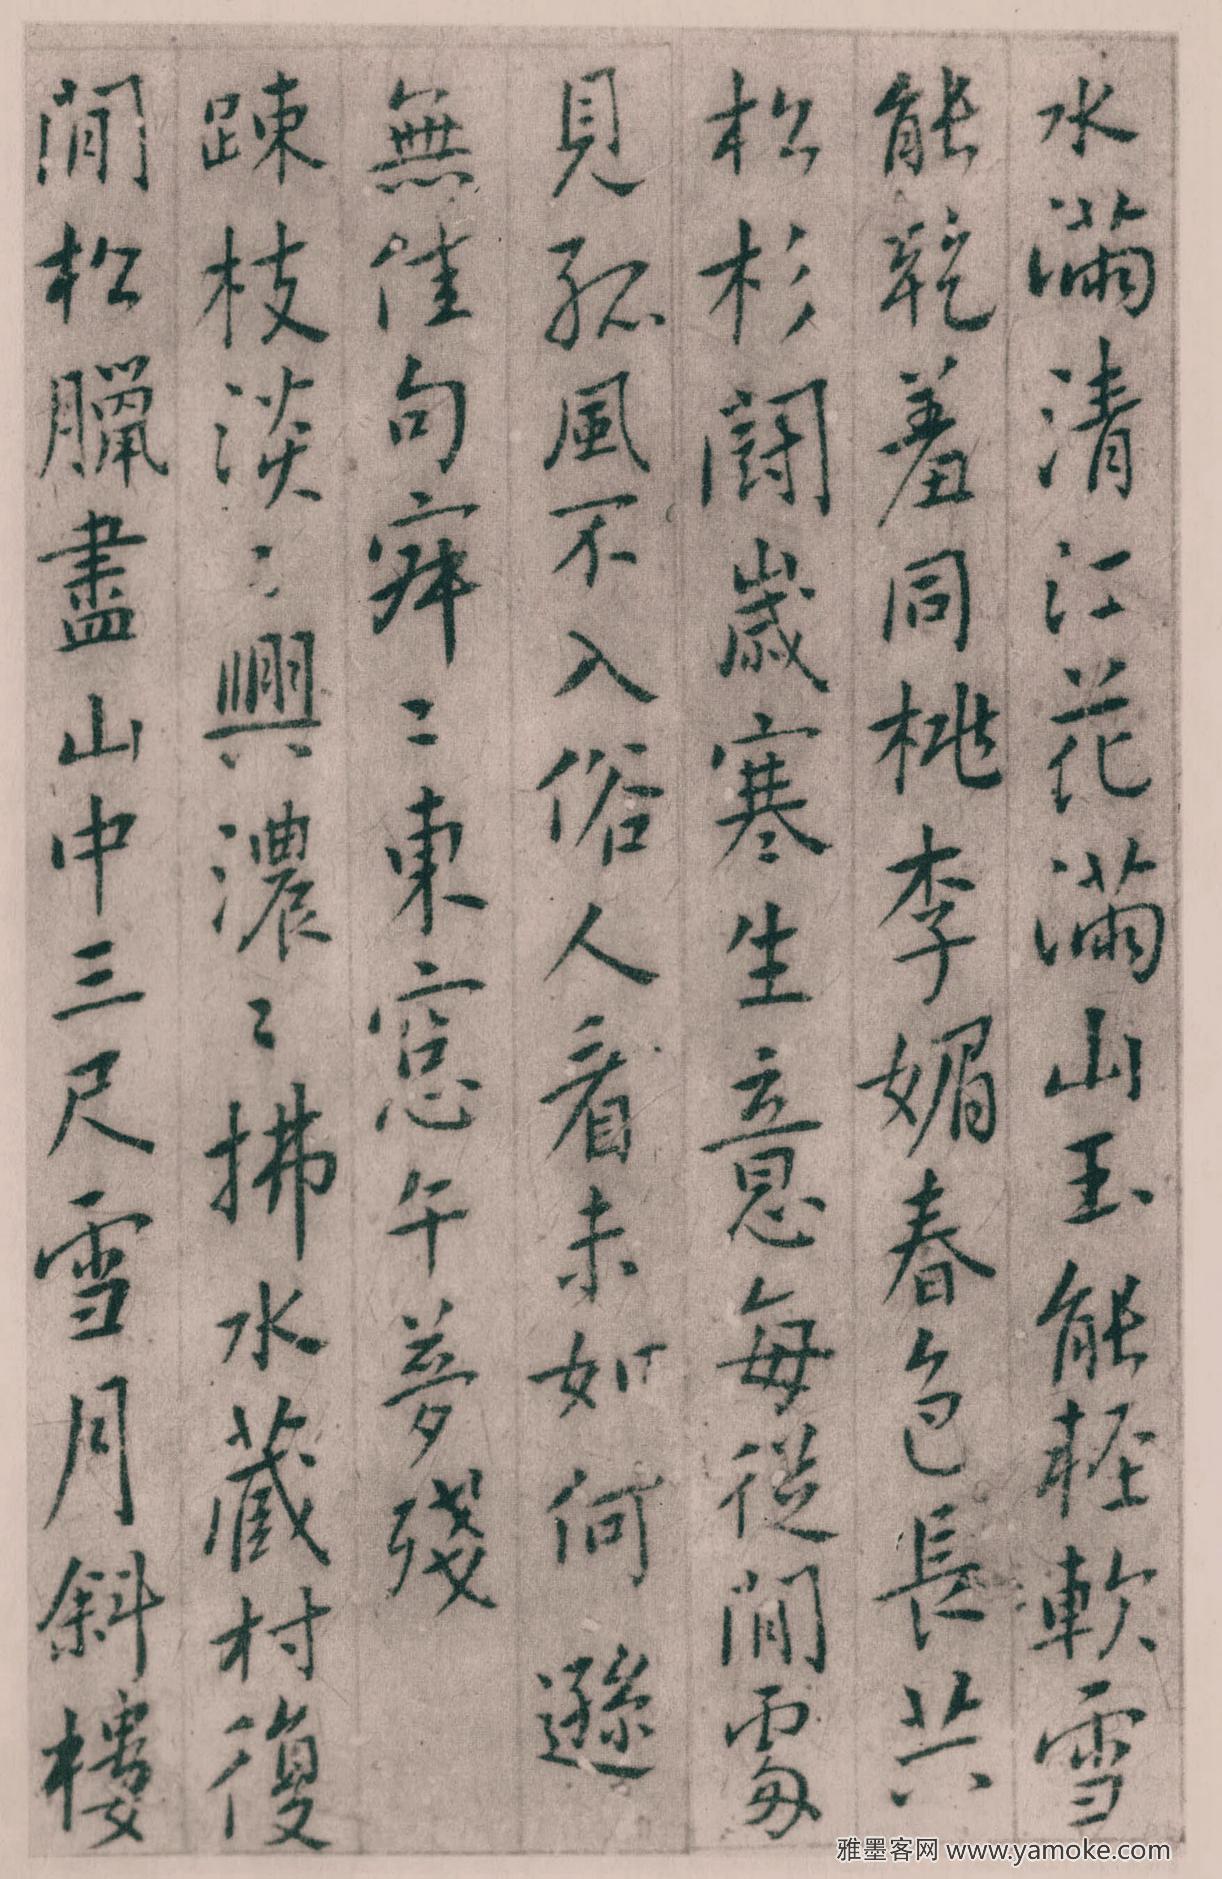 水滿清江花滿山玉能輕軟雪
能乾羞同桃李媚春色長共
松杉鬪歲寒生意每從閒處
見孤風不入俗人看未如何遜
無佳句寐〻東窓午夢殘
踈枝淡〻興濃〻拂水藏村復
閒松臘盡山中三尺雪月斜樓
雅墨客网 www.yamoke.com